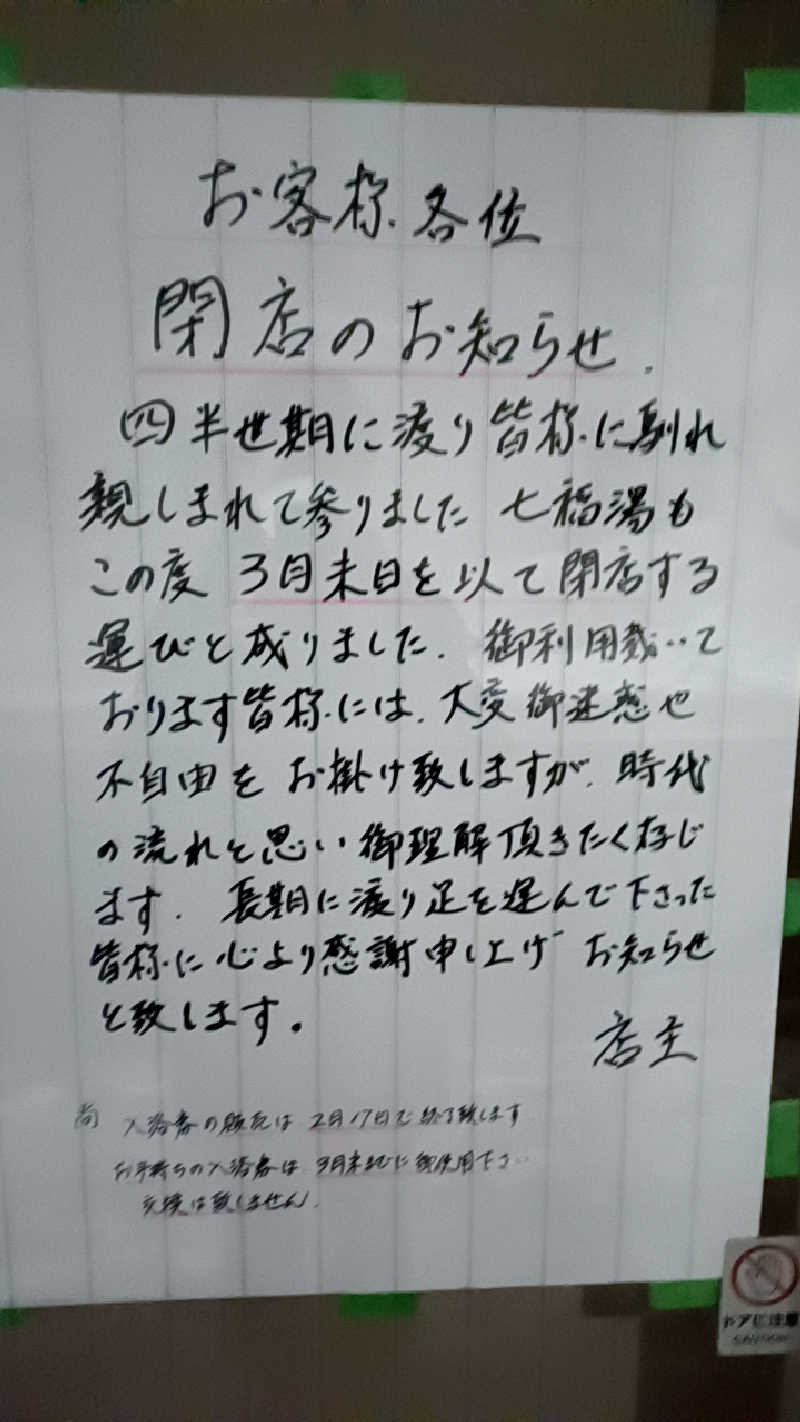 お客様各位
閉店のお知らせ.
四半世期に渡り皆様に馴れ
親しまれて参りました七福湯も
この度 3月末日を以て閉店する
運びと成りました. 御利用戴いて
おります皆様には、大変御迷惑や
不自由をお掛け致しますが、時代
の流れと思い御理解頂きたく存じ
ます. 長期に渡り足を運んで下さった
皆様に心より感謝申し上げ お知らせ
と致します。
店主
尚 入浴券の販売は 2月17日で終了致します
お手持ちの入浴券は 3月末までに御使用下さい
交換は致しません.
ドアに注意